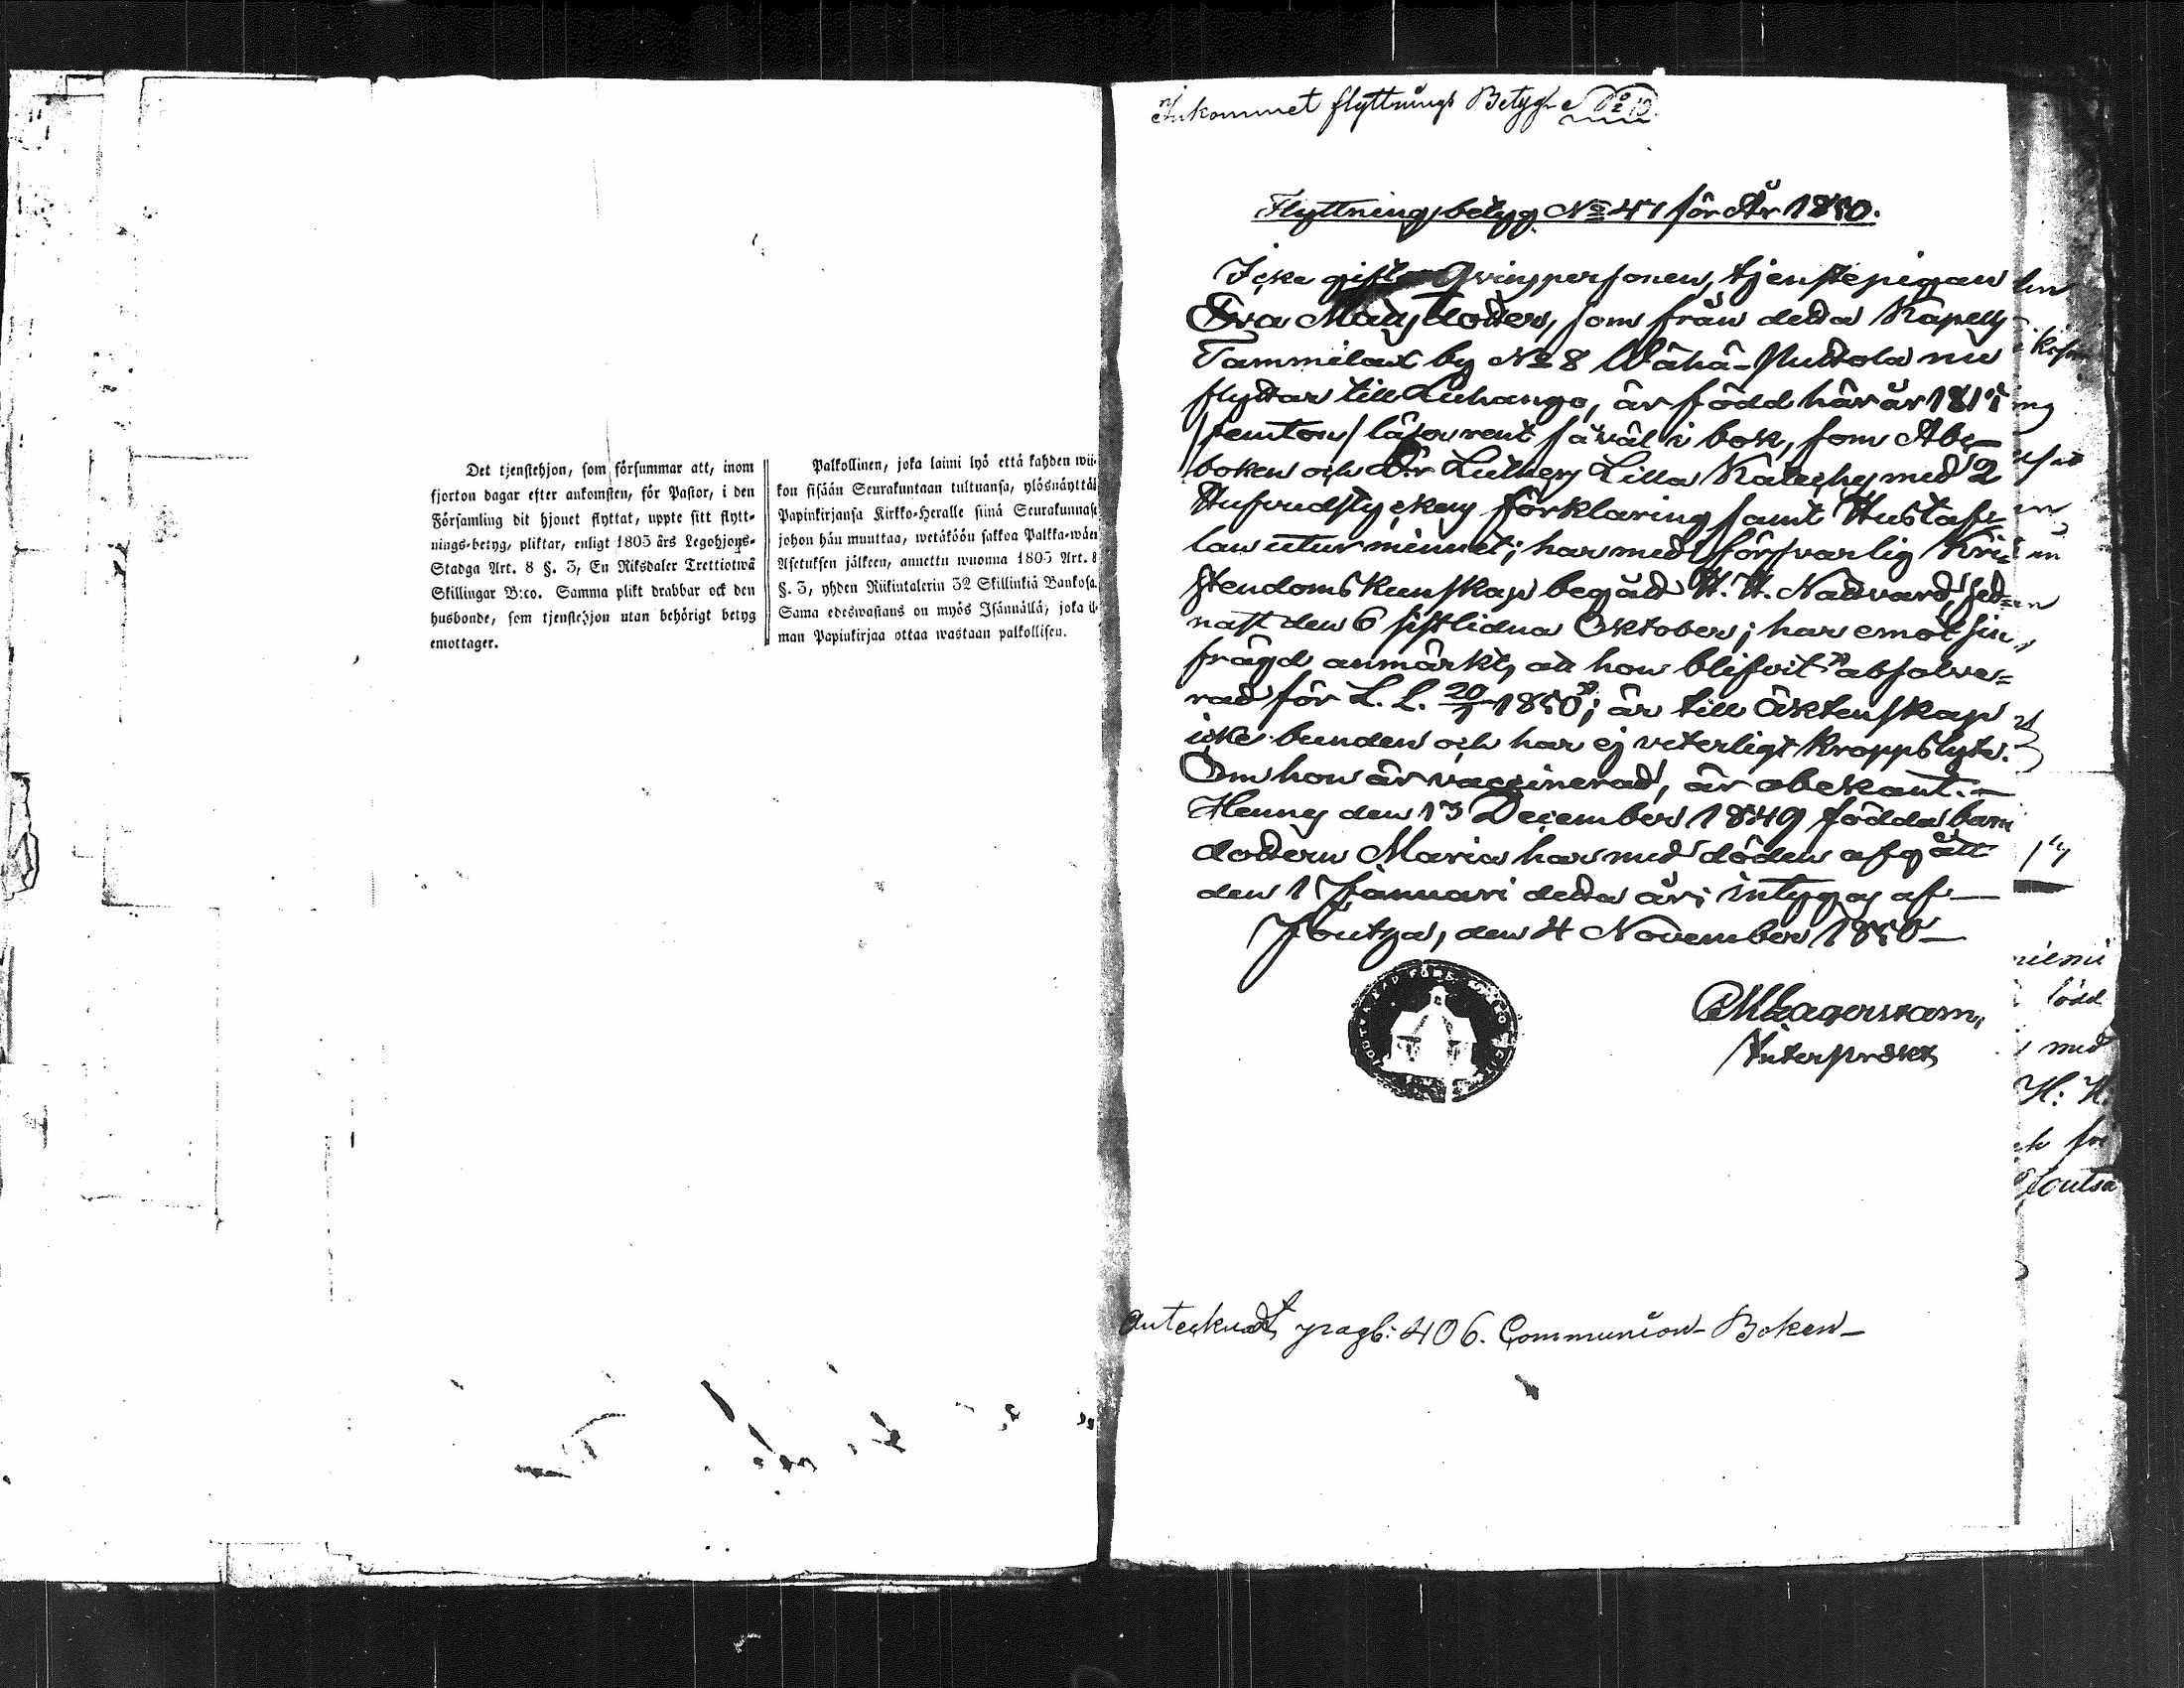 Det tjenstehjon, som försummar att, inom
fjorton dagar efter ankomsten, för Pastor, i den
Församling dit hjonet flyttat, uppte sitt flytt-
nings-betyg, pliktar, enligt 1805 års Legohjons-
Stadga Art. 8 §. 3, En Riksdaler Trettiotwå
Skillingar B:co. Samma plikt drabbar ock den
husbonde, som tjenstehjon utan behörigt betyg
emottager.
Palkollinen, joka laimi lyö että kahden wii-
kon sisään Seurakuntaan tultuansa, ylösnäyttää
Papinkirjansa Kirkko-Herralle siinä Seurakunnasa
johon hän muuttaa, wetäköön sakkoa Palkka-wäen
Asetuksen jälkeen, annettu wuonna 1805 Art. 8
§. 3, yhden Riikintalerin 32 Skillinkiä Bankosa.
Sama edeswastaus on myös Isännällä, joka il-
man Papinkirjaa ottaa wastaan palkollisen.
Inkommet flyttnings Betyg No 10.
Flyttningsbetyg No 41 för År 1850.
Icke gifta Qvinspersonen, tjenstepigan
Eva Matsdotter, som från detta Kapells
Tammilax by No 8 Wähä-Puttola nu
flyttar till Luhango, är född här år
läser rent såväl i bok, som Abc-
boken och D:r Luthers Lilla Kateches med 2
Hufvudstyckens förklaring samt Hustaf-
lan utur minnet; har med försvarlig Kri-
stendoms kunskap begått H. H. Nattvard, sed-
nast den 6 sistlidna Oktober; har emot sin
frägd anmärkt, att hon blifvit "absolve-
rad för L. L. 20/1 1850"; är till Äktenskap
icke bunden och har ej veterligt kroppslyte.
Om hon är vaccinerad, är obekant.—
Hennes den 13 December 1849 födda barn
dottern Maria har med döden afgått
den 1 Januari detta år; intygas af—
Joutza, den 4 November 1850—
Antecknadt pag: 406. Communion-Boken—